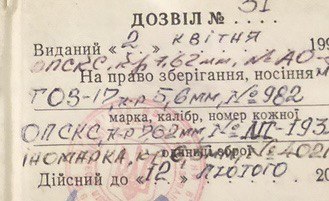 ДОЗВІЛ № 51
Виданий « 2 » квітня 199
ОПСКС, к-р 7,62мм, № АО-3
На право зберігання, носіння
ТОЗ-17, к-р 5,6мм, № 982
марка, калібр, номер кожної
ОПСКС, к-р 7,62мм, № АП-193
ІНОМАРКА, к-р № 4021
одиниці зброї
Дійсний до « 12 » лютого 20